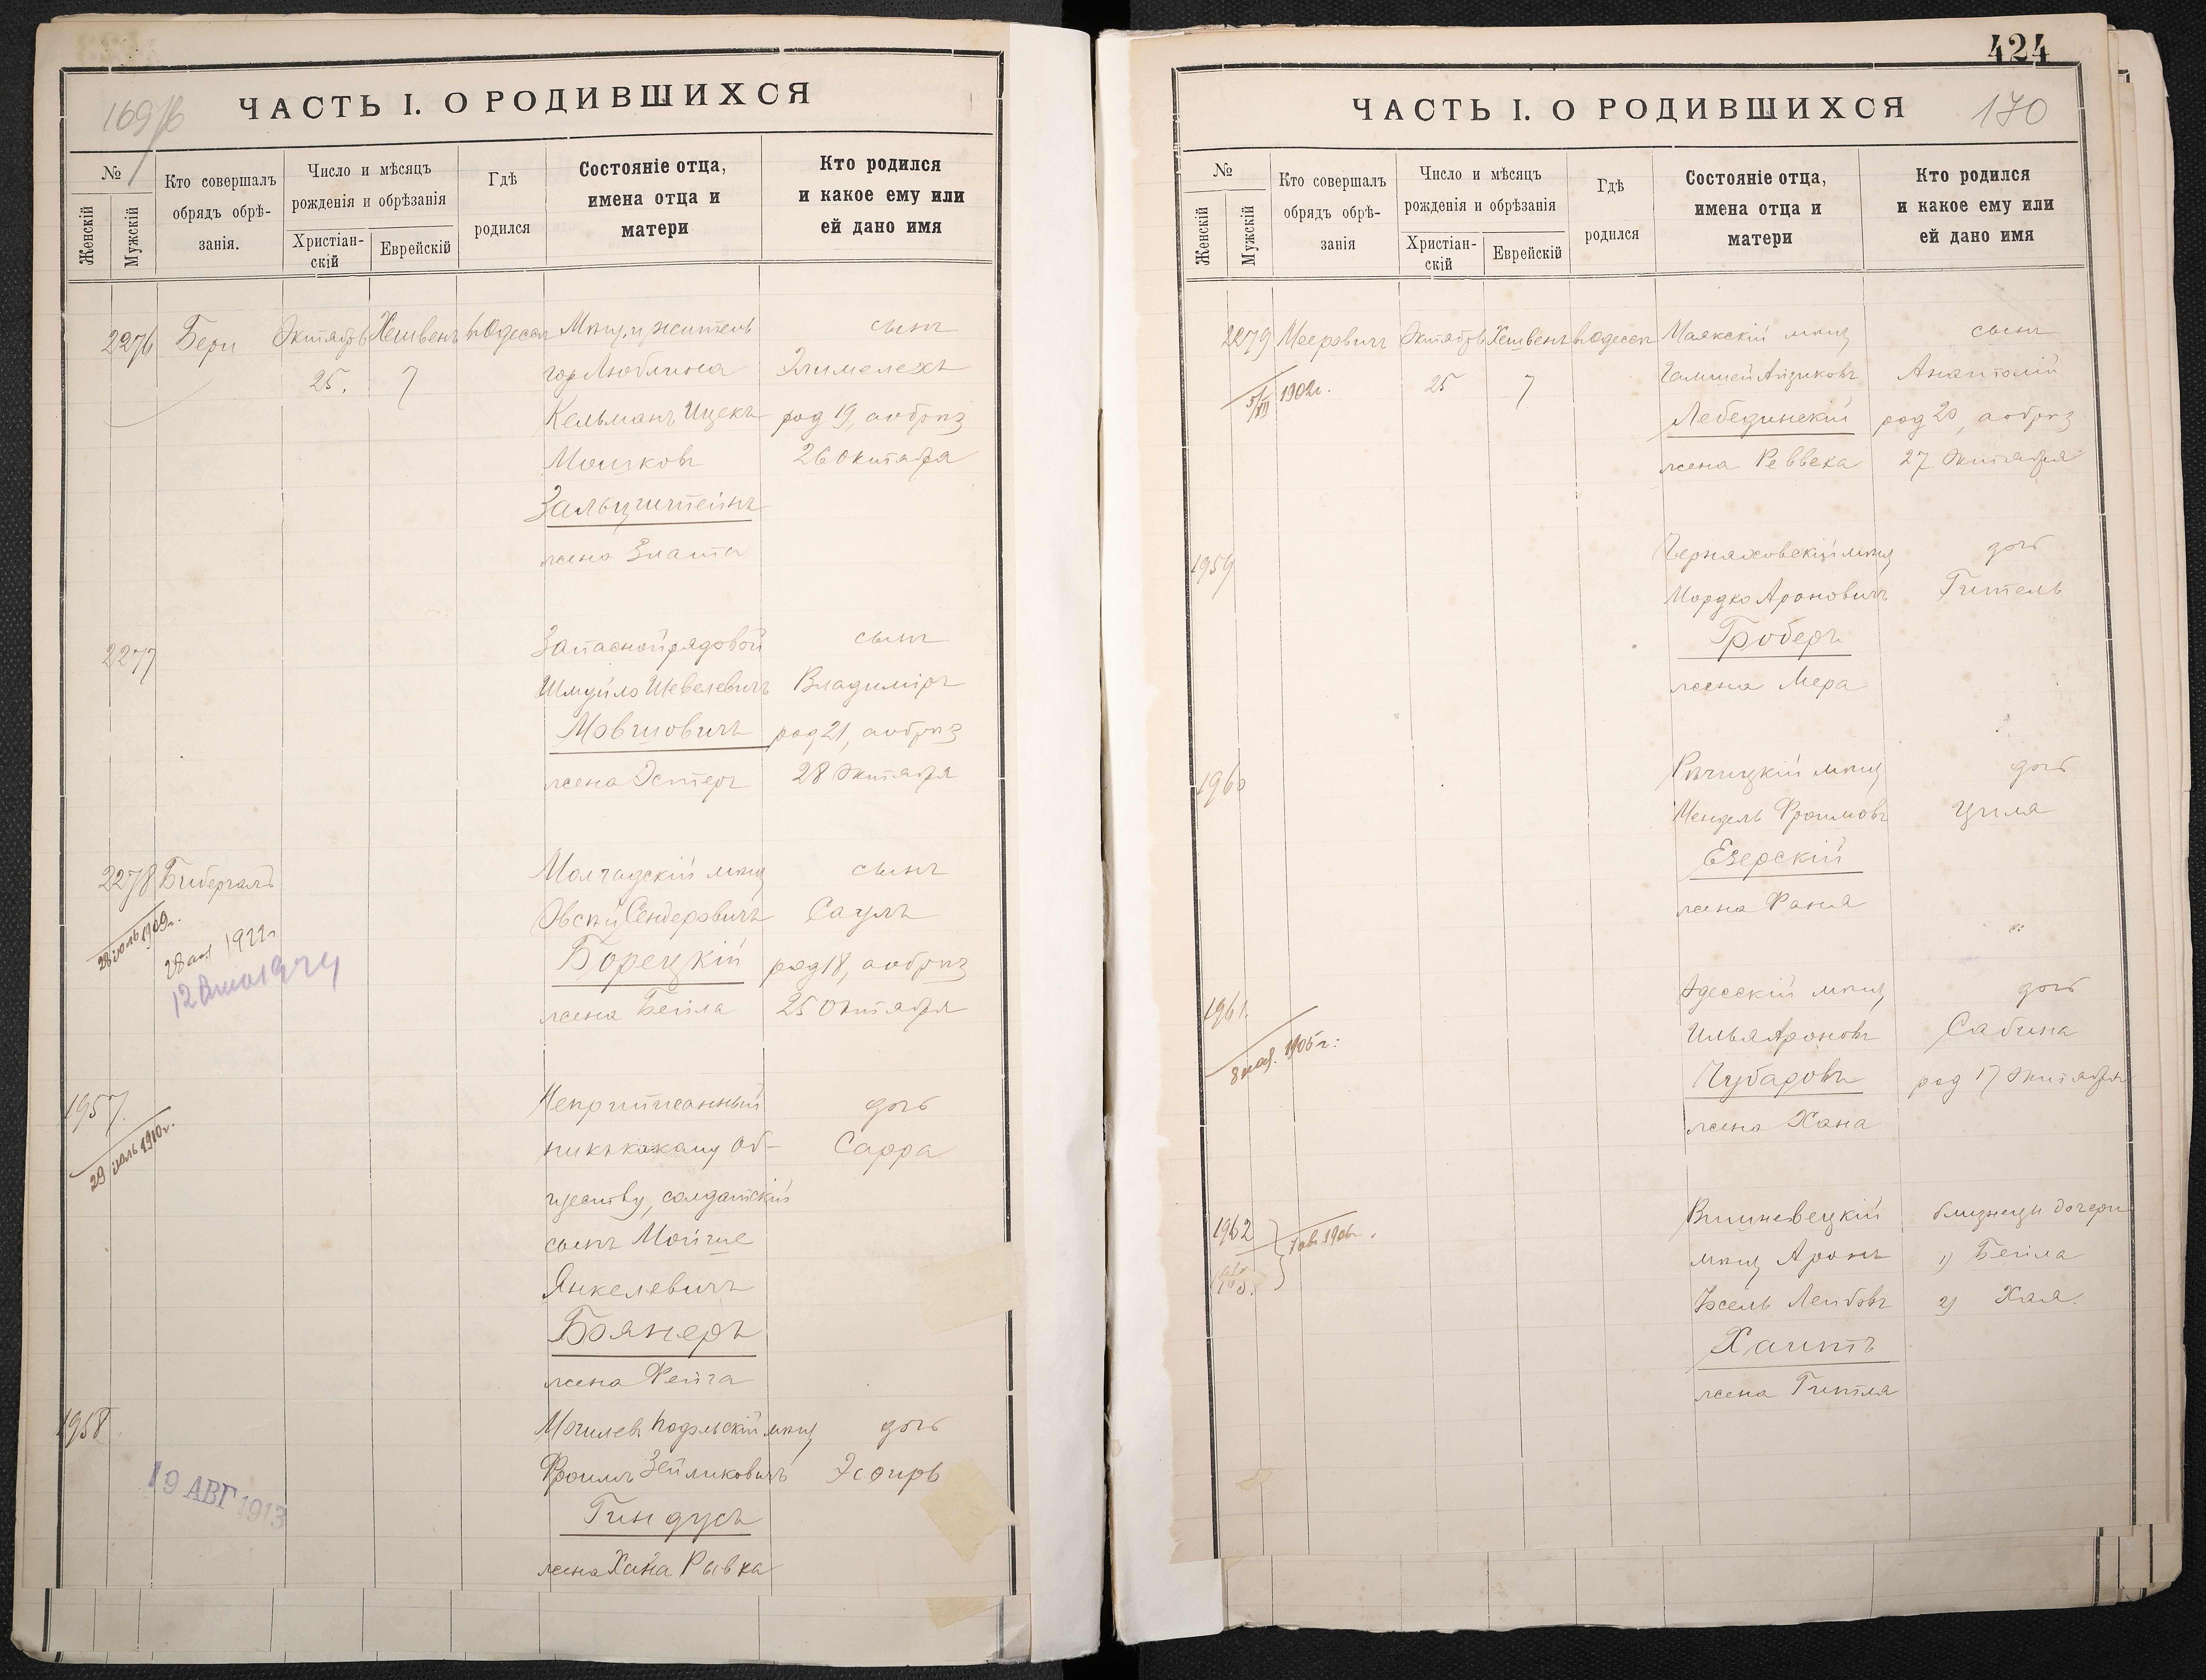 169/б
ЧАСТЬ I. О РОДИВШИХСЯ
№
Женскій
Мужскій
Кто совершалъ
обрядъ обрѣ-
занія.
Число и мѣсяцъ
рожденія и обрѣзанія
Христіан-
скій
Еврейскій
Гдѣ
родился
Состояніе отца,
имена отца и
матери
Кто родился
и какое ему или
ей дано имя
2276
Бери
Октября
25.
Хешвенъ
7
въ Одессѣ
житель
гор Люблина
Кельманъ Ицекъ
Мошковъ
Зальцштейнъ
жена Злата
сынъ
Элимелехъ
род 19, а обрѣз
26 Октября
2277
Запасной рядовой
Шмуйло Шевелевичъ
Мовшовичъ
жена Эстеръ
сынъ
Владиміръ
род 21, а обрѣз
28 Октября
2278
Бибергалъ
28 іюль 1909г.
1922г
Молчадскій мѣщ
Овсей Сендеровичъ
Борецкій
жена Бейла
сынъ
Саулъ
род 18, а обрѣз
25 Октября
1957.
29 іюль 1910г.
Неприписанный
ни къ какому об-
ществу, солдатскій
сынъ Мойше
Янкелевичъ
Боянеръ
жена Фейга
дочь
Сарра
1958
19 АВГ 1913
Могилевъ Подольскій мѣщ
Фроимъ Зейликовичъ
Гиндусъ
жена Хана Рывка
дочь
Эсфирь
424
ЧАСТЬ I. О РОДИВШИХСЯ
170
№
Женскій
Мужскій
Кто совершалъ
обрядъ обрѣ-
занія
Число и мѣсяцъ
рожденія и обрѣзанія
Христіан-
скій
Еврейскій
Гдѣ
родился
Состояніе отца,
имена отца и
матери
Кто родился
и какое ему или
ей дано имя
2279
Мееровичъ
Октября
25
Хешвенъ
7
въ Одессѣ
1902г.
Маякскій мѣщ
Айзиковъ
Лебединскій
жена Реввека
сынъ
Анатолій
род 20, а обрѣз
27 Октября
1959
Черняховскій мѣщ
Мордко Ароновичъ
Гроберъ
жена Мера
дочь
Гитель
1960
Рѣчицкій мѣщ
Мендель Фроимовъ
Езерскій
жена Фаня
дочь
Циля
1961.
8 1905 г.
Одесскій мѣщ
Илья Ароновъ
Чубаровъ
жена Хана
дочь
Сабина
род 17 Октября
1962
Вишневецкій
мѣщ Аронъ
Іосель Лейбовъ
Хаитъ
жена Гитля
близнецы дочери
1) Бейла
2) Хая.